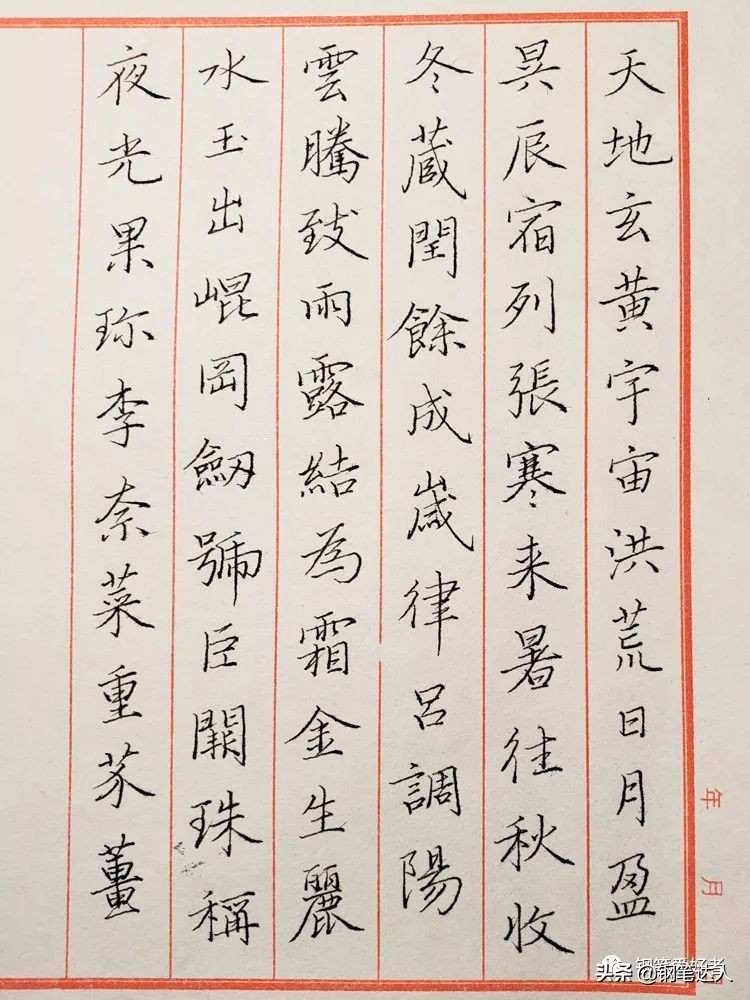 天地玄黄宇宙洪荒日月盈
昃辰宿列張寒来暑往秋收
冬蔵閏餘成歲律呂調陽
雲騰致雨露結為霜金生麗
水玉出崐岡劒號臣闕珠稱
夜光果珎李奈菜重芥薑
年月
钢笔爱好者
头条@钢笔达人